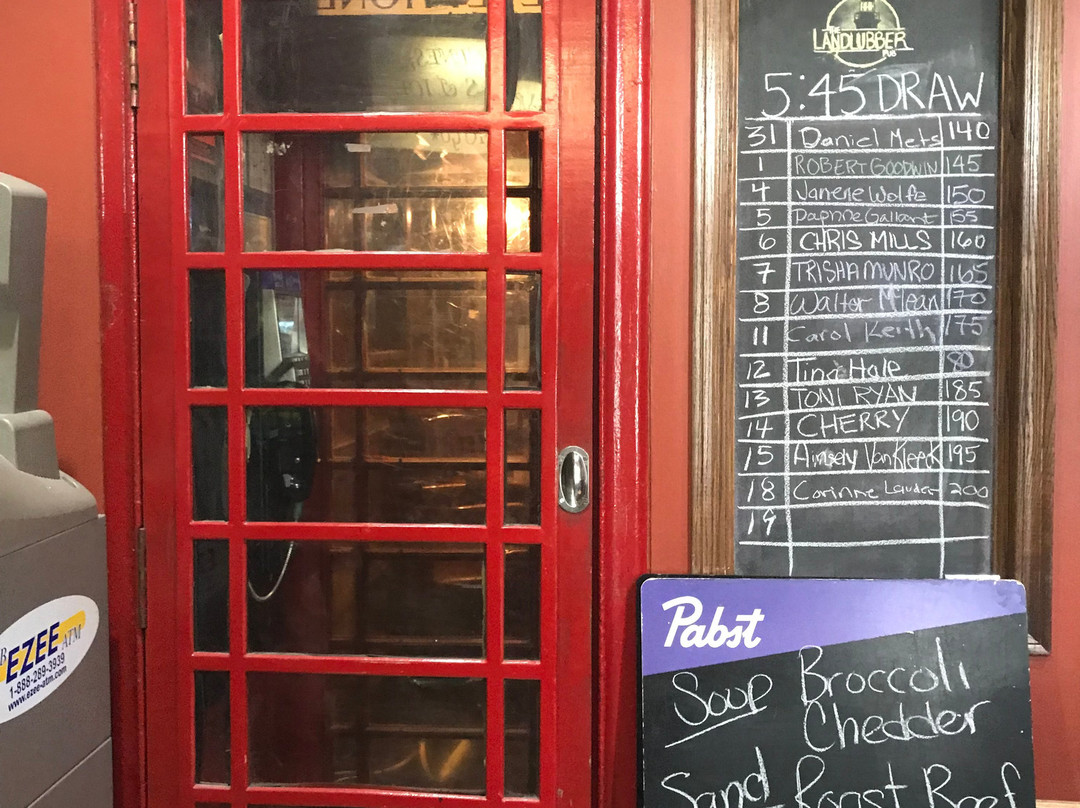 THE
LANDLUBBER
PUB
5:45 DRAW
31 Daniel Mets 140
1 ROBERT GOODWIN 145
4 Janene Wolfe 150
5 Daphne Gallant 155
6 CHRIS MILLS 160
7 TRISHA MUNRO 165
8 Walter McLean 170
11 Carol Keith 175
12 Tina Hale 80
13 TONI RYAN 185
14 CHERRY 190
15 VanKleeck 195
18 Corinne 200
19
Pabst
Soup Broccoli
Chedder
Sand Roast Beef
EZEE ATM
1-888-289-3939
www.ezee-atm.com